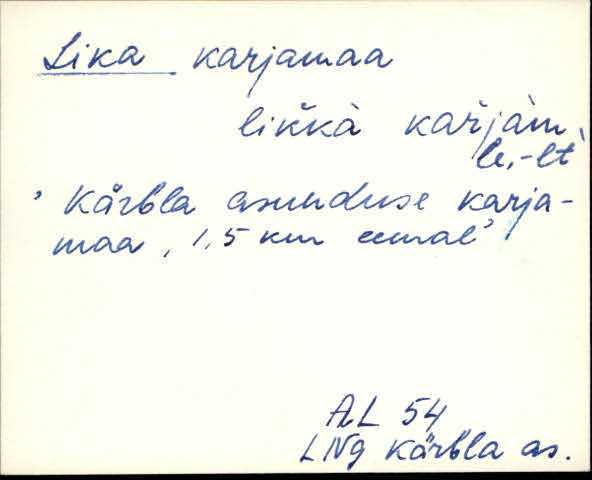 Lika karjamaa
likkà karjàm,
le, -lt
' Kärbla asunduse karja-
maa, 1,5 km eemal'
AL 54
LNg Kärbla as.